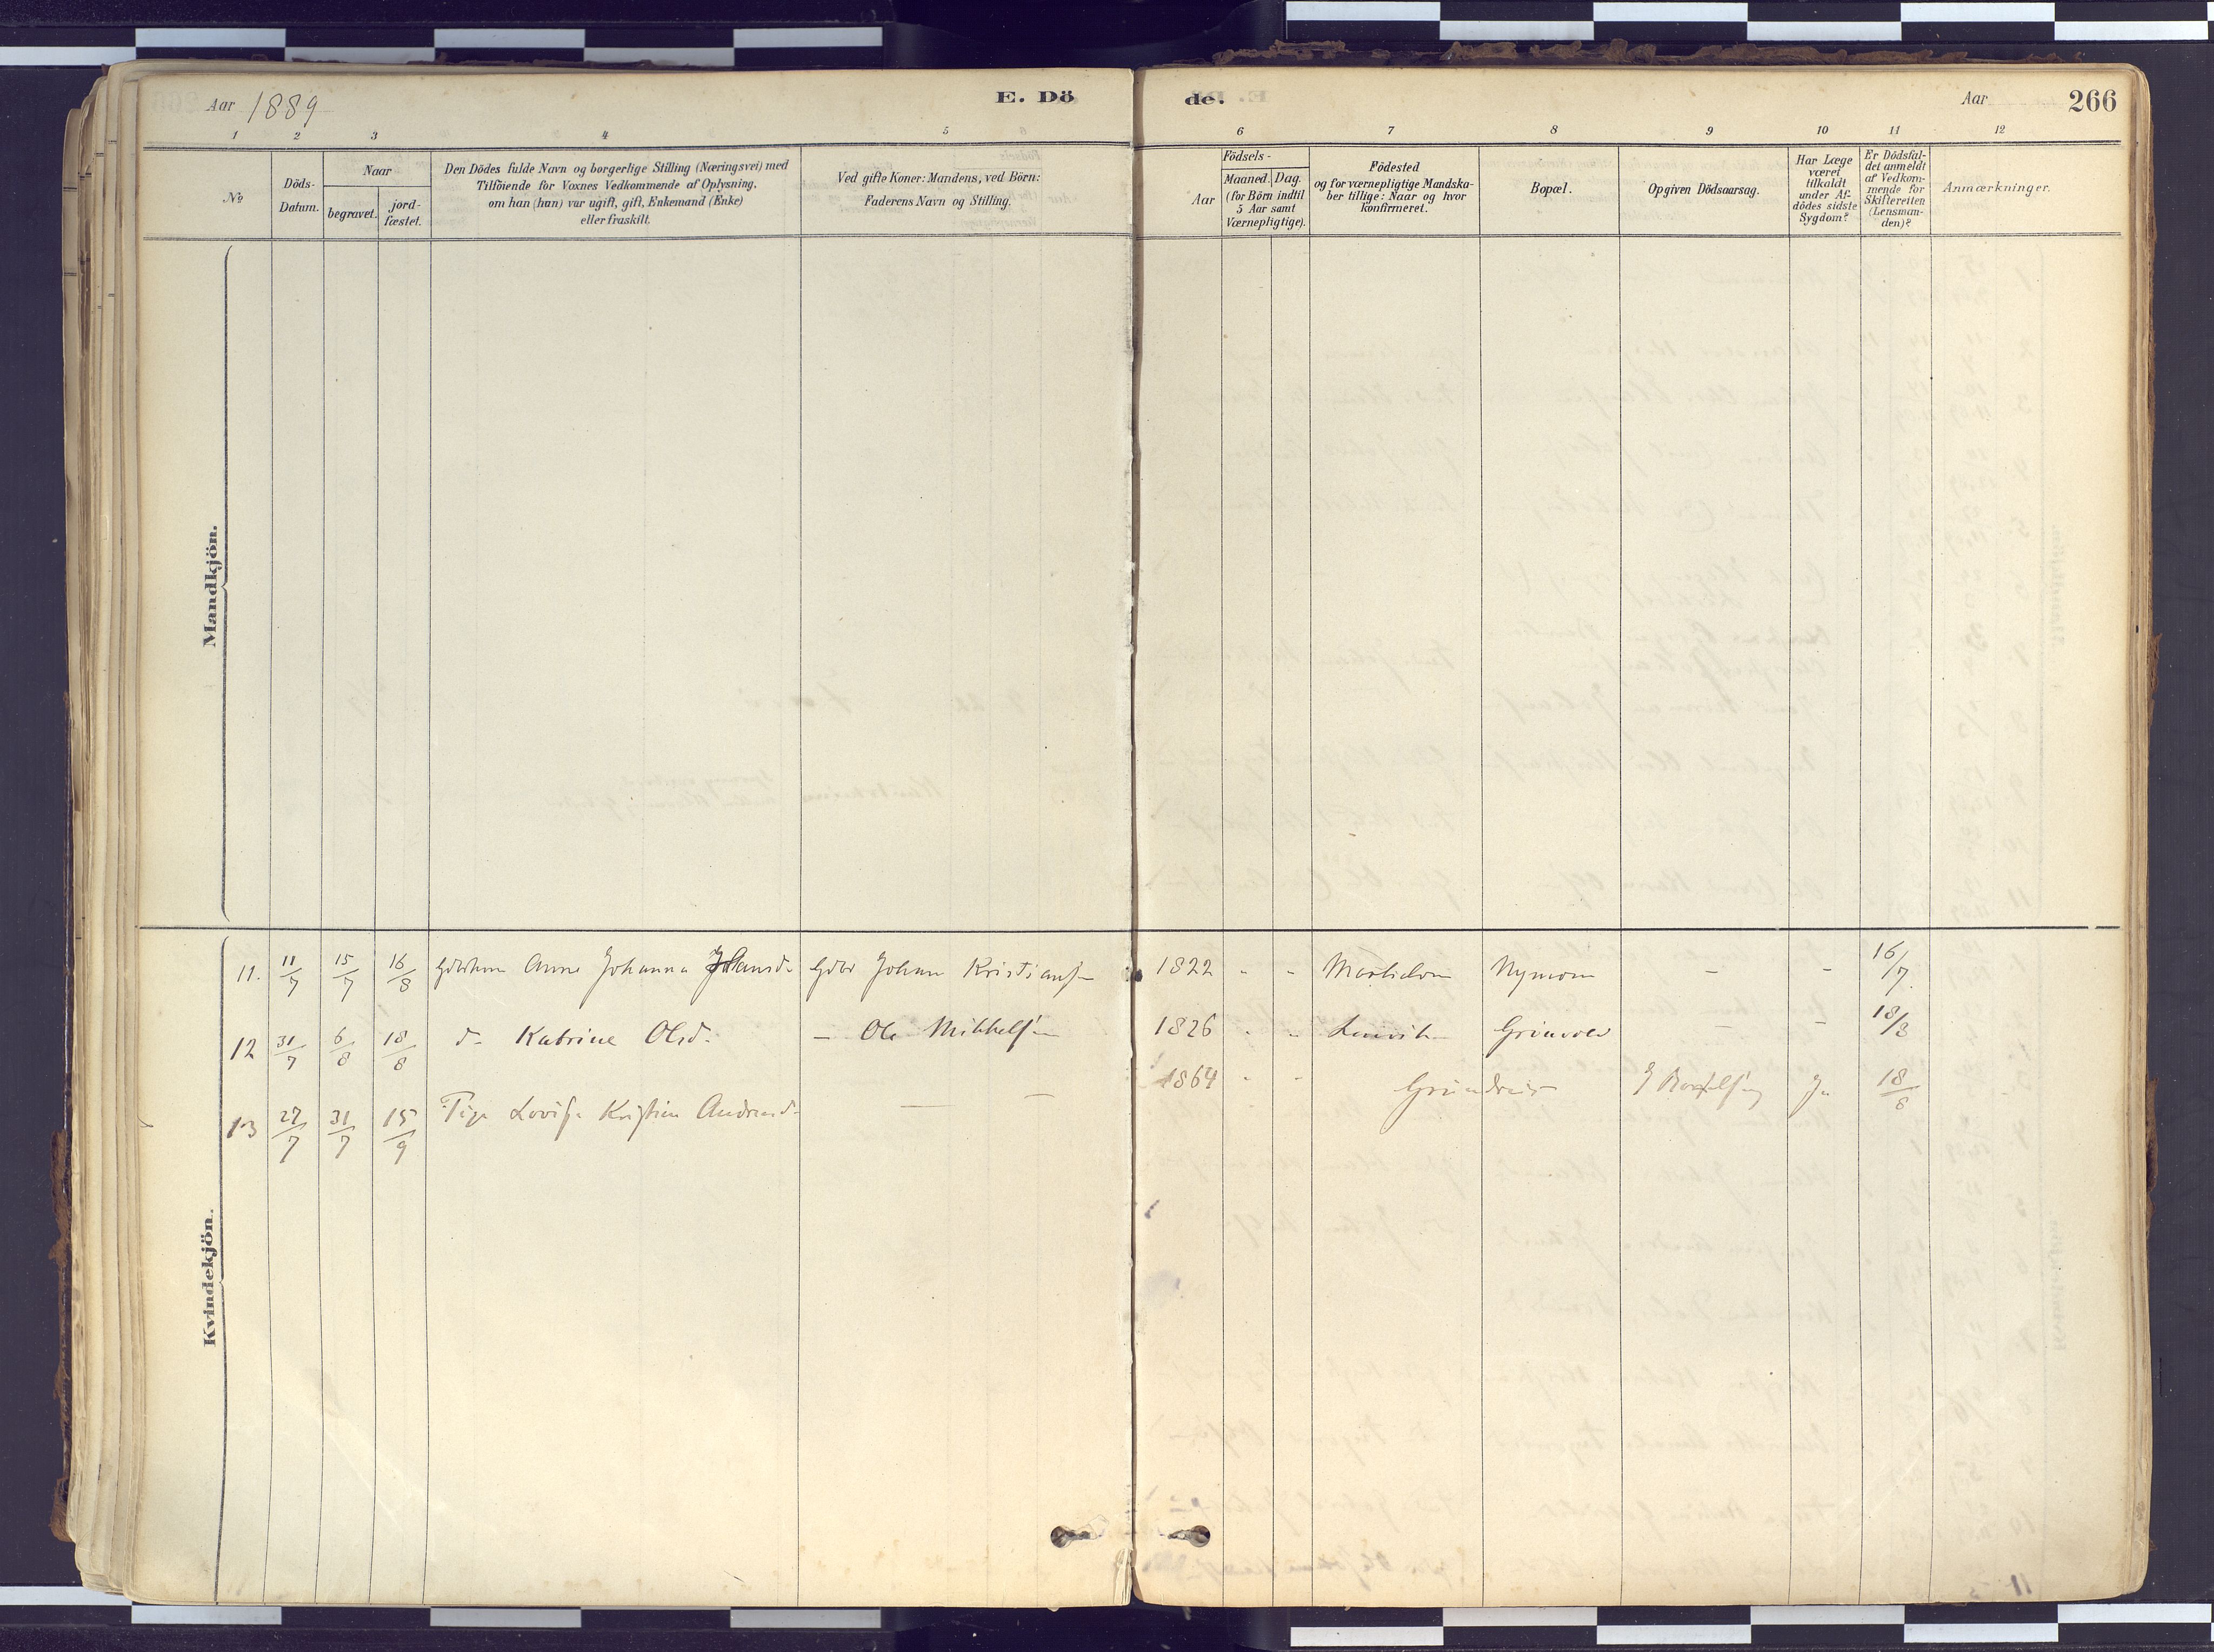 Aar 1889
E. Dö
de.
Aar
266
1 2 3 4 5 6 7 8 9 10 11 12
No
Döds-
Datum.
Naar
begravet.
jord-
fæstet.
Den Dödes fulde Navn og borgerlige Stilling (Næringsvei) med
Tilföiende for Voxnes Vedkommende af Oplysning,
om han (hun) var ugift, gift, Enkemand (Enke)
eller fraskilt.
Ved gifte Koner: Mandens, ved Börn:
Faderens Navn og Stilling.
Födsels-
Aar
Maaned. Dag.
(for Börn indtil
5 Aar samt
Værnepligtige).
Födested
og for værnepligtige Mandska-
ber tillige: Naar og hvor
konfirmeret.
Bopæl.
Opgiven Dödsaarsag.
Har Læge
været
tilkaldt
under Af-
dödes sidste
Sygdom?
Er Dödsfal-
det anmeldt
af Vedkom-
mende for
Skifteretten
(Lensman-
den)?
Anmærkninger.
Mandkjön.
Kvindekjön.
11. 11/7 15/7 16/8 Anne Johanna Gdbr Johan Kristians 1822 - - - - 16/7.
12 31/7 6/8 18/8 d. Katrine Olsd. - Ole Mikkels 1826 - - - - 18/8
13 27/7 31/7 15/9 Pige Lovise Kristine — — 1864 - - Ja 18/8